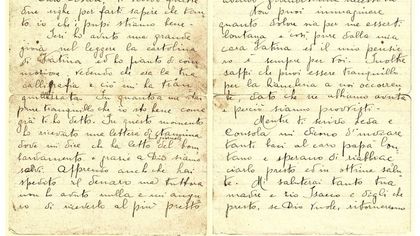 due righe per farti sapere che tanto
io che i pupi stiamo bene-
Ieri ho avuto una grande
gioia nel leggere la cartolina
di Tatina ed ho pianto di com-
mozione, vedendo che era la tua
calligrafia e ciò mi ha tran
quillizzata in quanto a me
pure tranquillo che io sto bene come
già ti ho detto. In questo momento
ho ricevuto una lettera di stamina
dove mi dice che ha letto del bom
bardamento e grazie a Dio siamo
salvi. Apprendo anche che hai
spedito il denaro ma tuttora
non ho avuto nulla e mi augu
ro di riceverlo al più presto
Non puoi immaginare
quanto dolore sia per me esserti
lontana e così pure dalla mia
cara Tatina ed il mio pensie
ro è sempre per voi. Inoltre
sappi che puoi essere tranquillo
per la biancheria e non occorren
te, dato che ne abbiamo avuta
perciò siamo provvisti-
Mentre ti scrivo Leda e
Consola mi dicono d'inviare
tanti baci al caro papà lon
tano e sperano di riabbrac
ciarlo presto ed in ottime salu
te. Mi saluterai tanto tua
madre e zio Isacco e dogli che
presto, se Dio vuole, ritorneremo